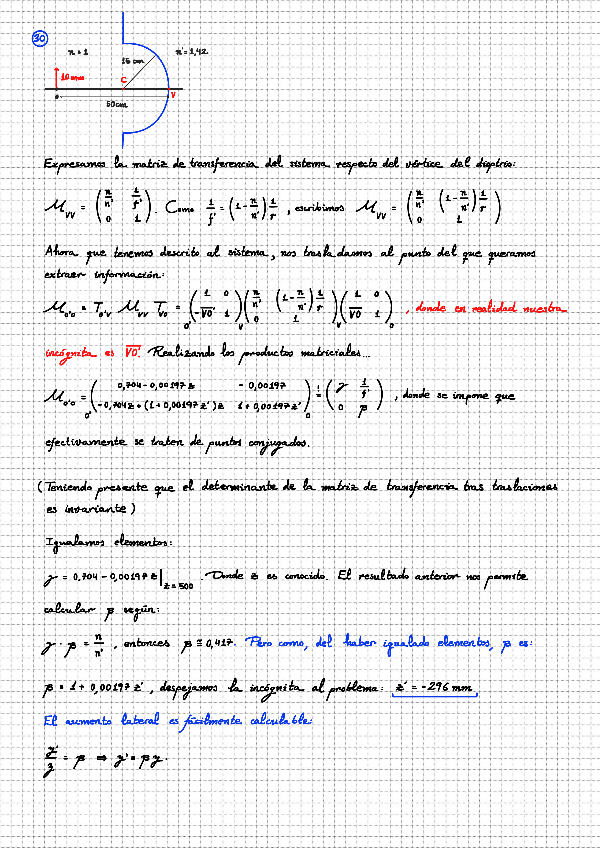 30
n = 1
n' = 1,42
15 cm
10 mm
C
V
0
50cm
Expresamos la matriz de transferencia del sistema respecto del vértice del dioptrio:
M_VV = ( n/n' 1/f' ; 0 1 ). Como 1/f' = (1 - n/n') 1/r , escribimos M_VV = ( n/n' (1 - n/n') 1/r ; 0 1 )
Ahora que tenemos descrito al sistema, nos trasladamos al punto del que queramos
extraer información:
M_O'O = T_O'V M_VV T_VO = ( 1 0 ; -VO' 1 ) ( n/n' (1 - n/n') 1/r ; 0 1 ) ( 1 0 ; VO 1 ) , donde en realidad nuestra
incógnita es VO'. Realizando los productos matriciales...
M_O'O = ( 0,704 - 0,00197 z - 0,00197 ; - 0,704 z + (1 + 0,00197 z') z 1 + 0,00197 z' ) = ( γ 1/f' ; 0 β ) , donde se impone que
efectivamente se traten de puntos conjugados.
(Teniendo presente que el determinante de la matriz de transferencia tras traslaciones
es invariante)
Igualamos elementos:
γ = 0,704 - 0,00197 z | z = 500 . Donde z es conocido. El resultado anterior nos permite
calcular β según:
γ · β = n/n' , entonces β ≅ 0,417. Pero como, del haber igualado elementos, β es:
β = 1 + 0,00197 z' , despejamos la incógnita al problema: z' = -296 mm
El aumento lateral es fácilmente calculable:
y'/y = β ⇒ y' = β y.